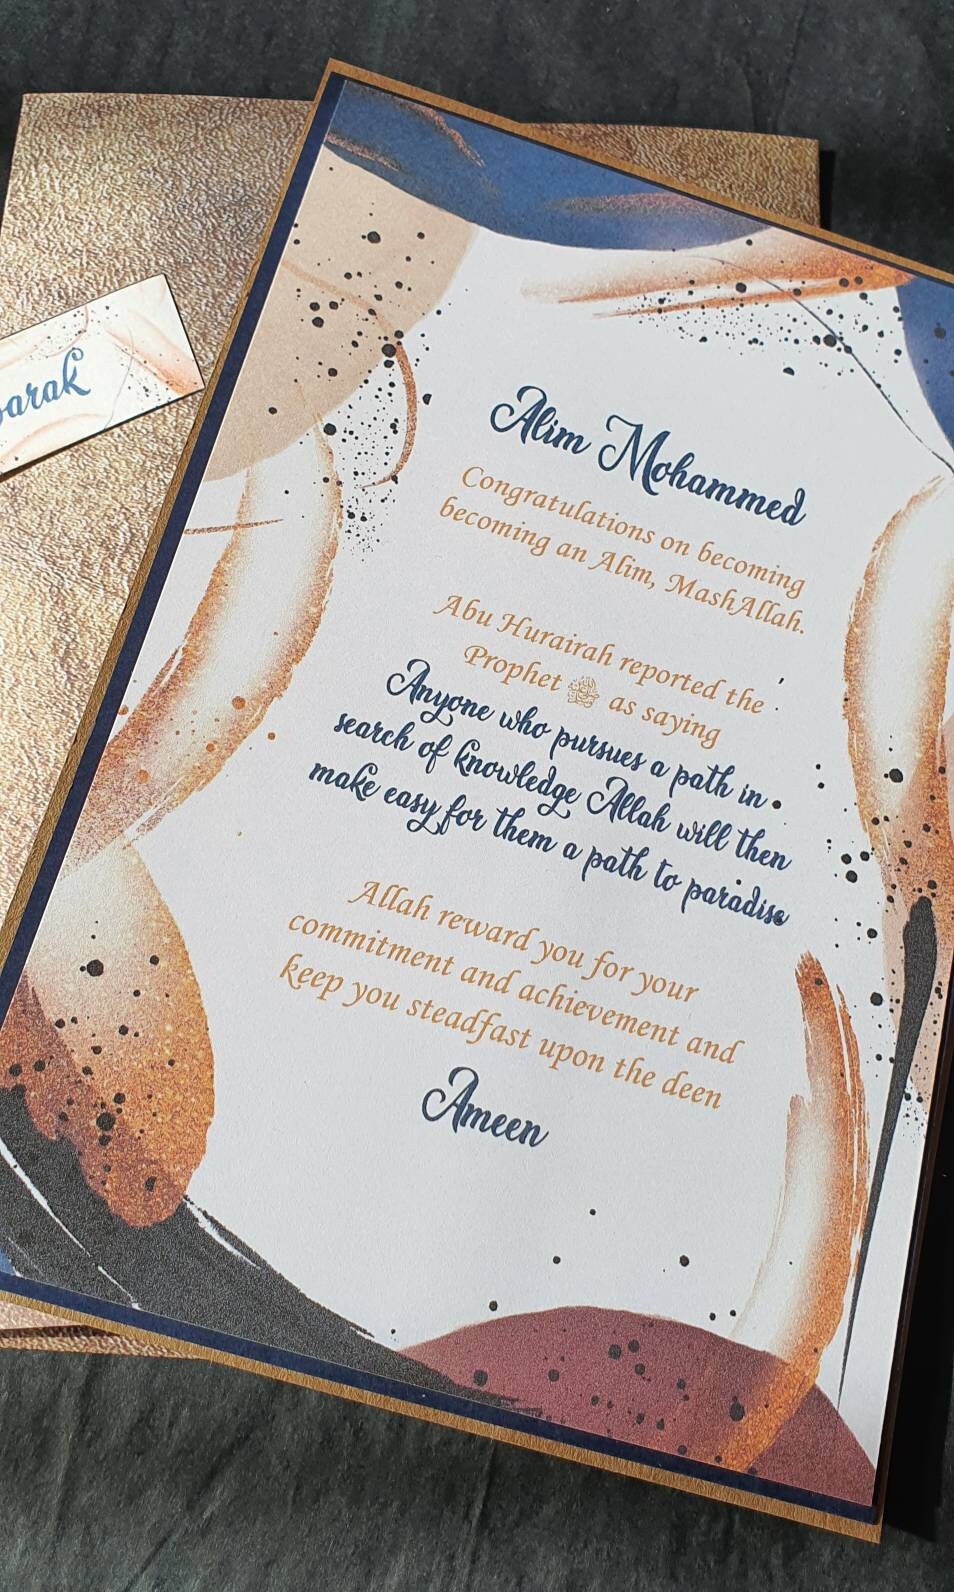 Alim Mohammed
Congratulations on becoming
becoming an Alim, MashAllah.
Abu Hurairah reported the
Prophet ﷺ as saying
Anyone who pursues a path in
search of knowledge Allah will then
make easy for them a path to paradise
Allah reward you for your
commitment and achievement and
keep you steadfast upon the deen
Ameen
arak